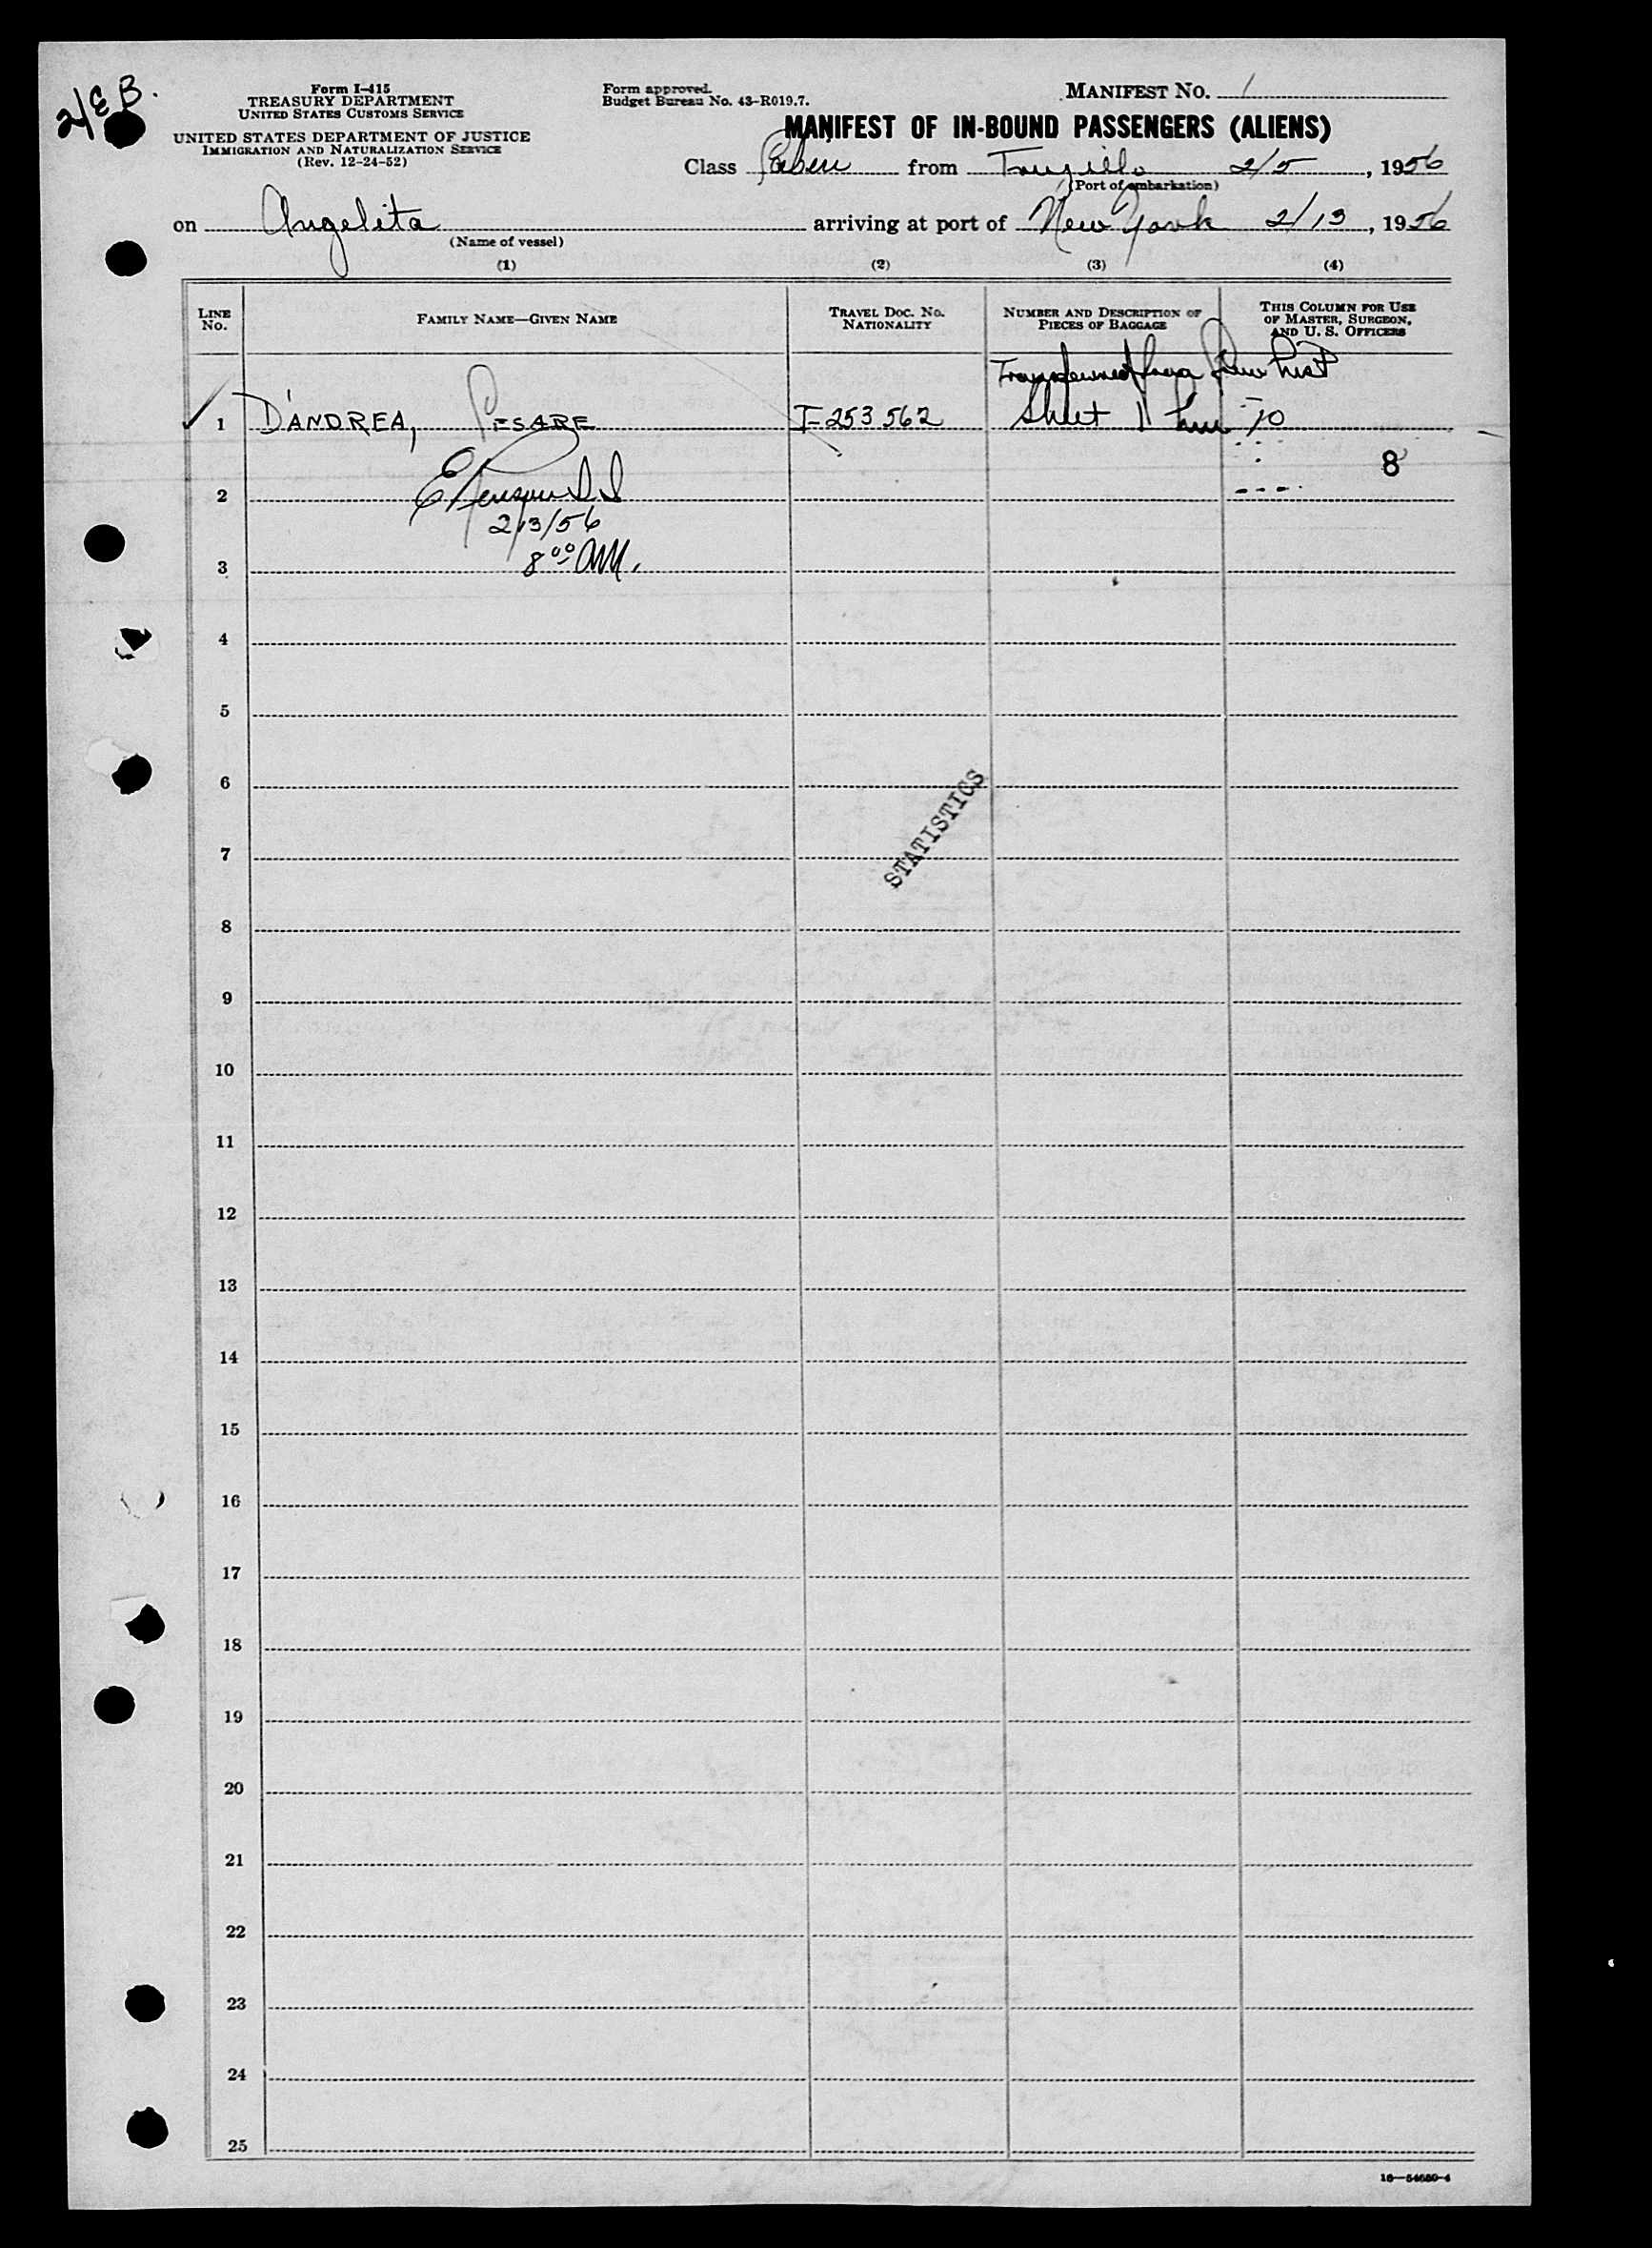 2/EB.
Form I-415
TREASURY DEPARTMENT
UNITED STATES CUSTOMS SERVICE
UNITED STATES DEPARTMENT OF JUSTICE
IMMIGRATION AND NATURALIZATION SERVICE
(Rev. 12-24-52)
Form approved.
Budget Bureau No. 43-R019.7.
MANIFEST NO. 1
MANIFEST OF IN-BOUND PASSENGERS (ALIENS)
Class from Trujillo 2/5, 1956
(Port of embarkation)
on Angelita arriving at port of New York 2/13, 1956
(Name of vessel)
(1) (2) (3) (4)
LINE No. FAMILY NAME—GIVEN NAME TRAVEL DOC. NO. NATIONALITY NUMBER AND DESCRIPTION OF PIECES OF BAGGAGE THIS COLUMN FOR USE OF MASTER, SURGEON, AND U. S. OFFICERS
Transferred from Crew List
1 D'ANDREA, CESARE I-253562 Sheet 1 Line 10
8
2
2/13/56
3 8 00 AM.
4
5
6
STATISTICS
7
8
9
10
11
12
13
14
15
16
17
18
19
20
21
22
23
24
25
16—54680-4